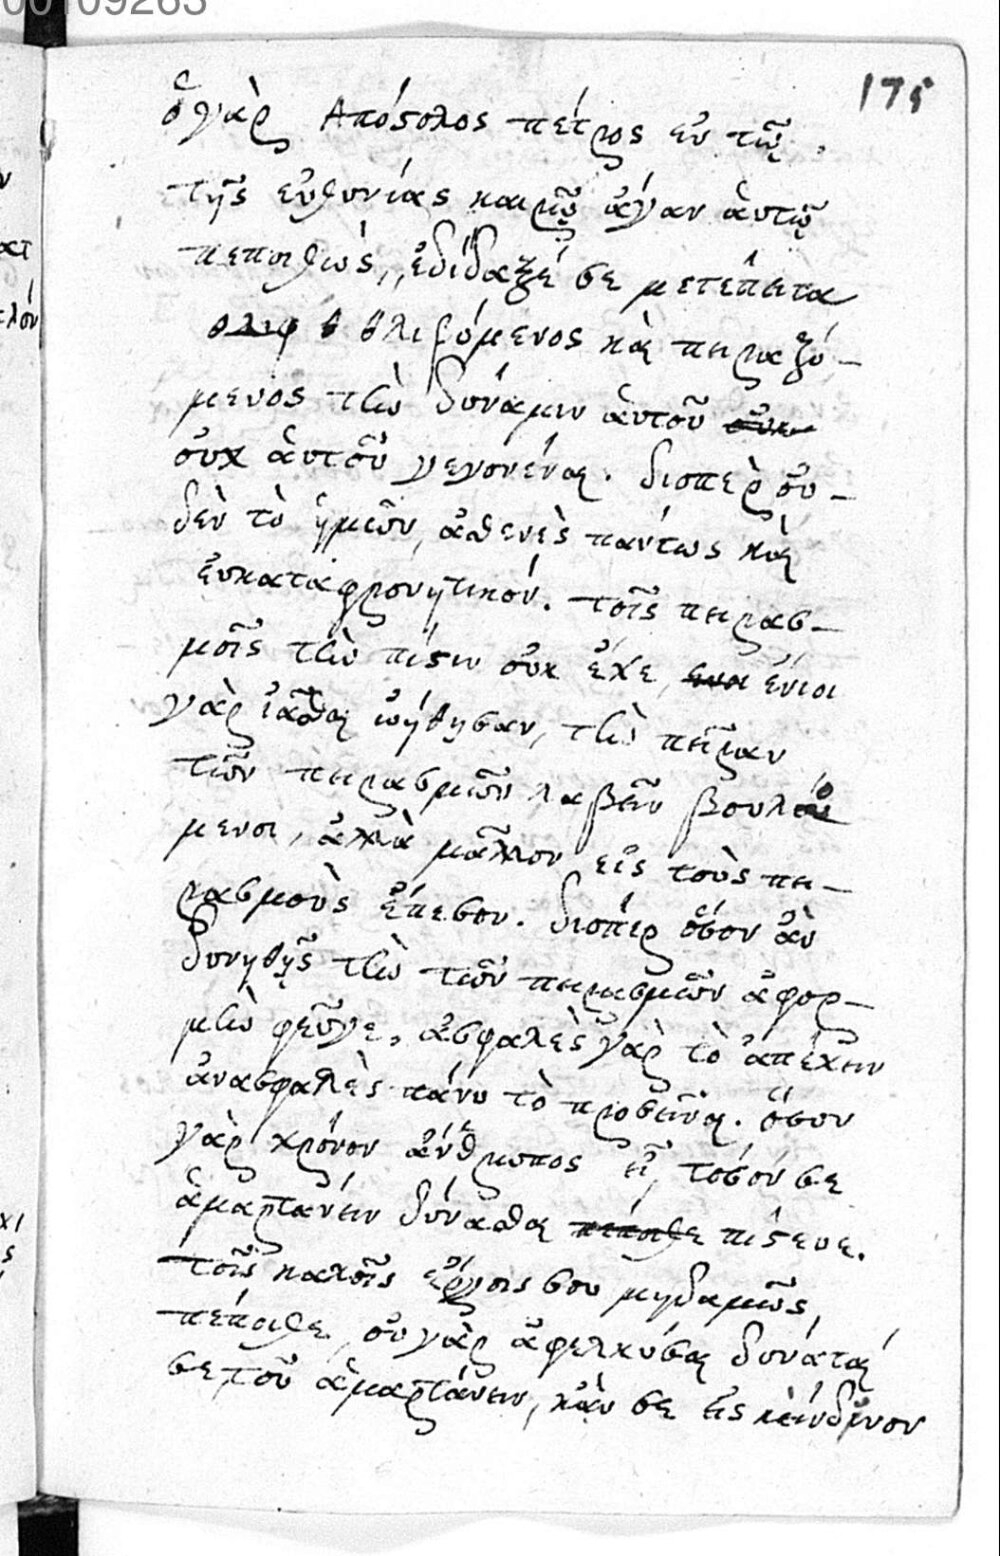 00 09263
175
ὁ γὰρ Ἀπόστολος πέτρος ἐν τῷ
τῆς εὐθυνίας καιρῷ ἄγαν ἀυτῷ
πεποιθὼς, ἐδίδαξέ σε μετέπειτα
θλιβόμενος καὶ πειραζό-
μενος τὴν δύναμιν ἀυτοῦ
οὐχ ἀυτοῦ γεγονέναι. διοπερ οὐ-
δὲν τὸ ἡμῶν, ἀσθενὲς πάντως καὶ
εὐκαταφρονητικόν. τοῖς πειρασ-
μοῖς τὴν πίστιν οὐκ ἔχε, ἔνιοι
γὰρ ἰᾶσθαι ᾠήθησαν, τὴν πεῖραν
τῶν πειρασμῶν λαβεῖν βουλό
μενοι, ἀλλὰ μᾶλλον εἰς τοὺς πει-
ρασμοὺς ἔπεσον. διόπερ ὅσον ἂν
δυνηθῇς τὴν τῶν πειρασμῶν ἀφορ-
μὴν φεῦγε, ἀσφαλὲς γὰρ τὸ ἀπέχειν
ἀνασφαλὲς πάνυ τὸ προσεῖναι. ὅσον
γὰρ χρόνον ἄνθρωπος εἶ, τοσόν σε
ἁμαρτάνειν δύνασθαι πίστευε.
τοῖς καλοῖς ἔργοις σου μηδαμῶς,
πέποιθε, οὐ γὰρ ἀφελκύσαι δύναταί
σε, τοῦ ἁμαρτάνειν, κἂν σε εἰς κίνδυνον